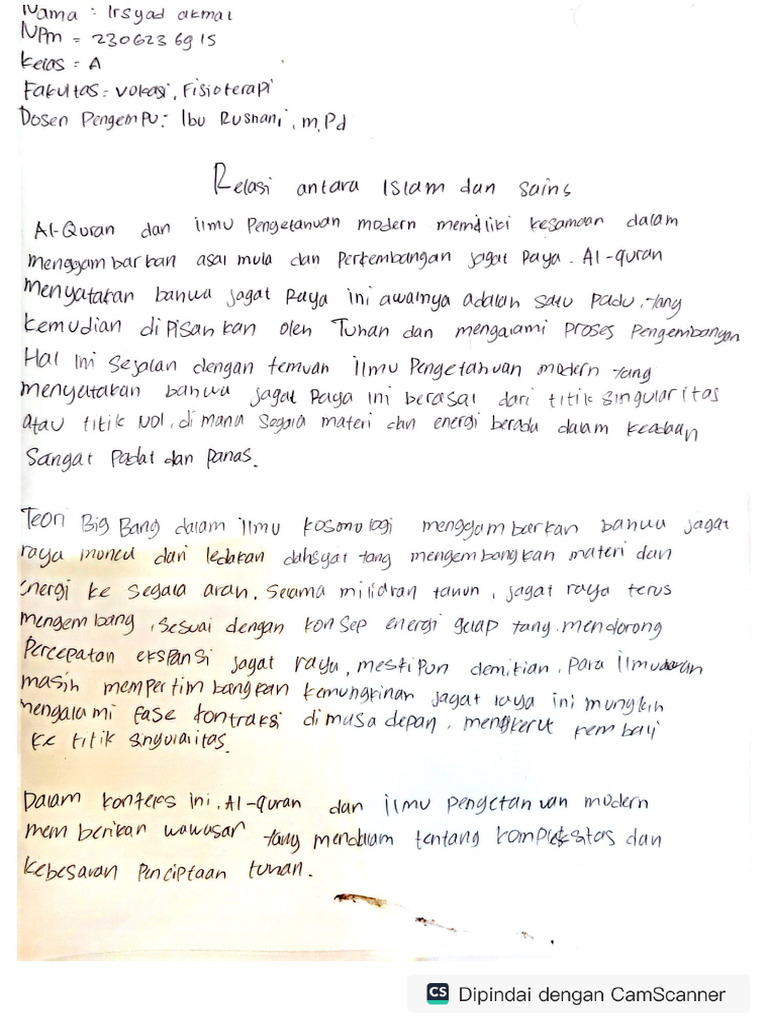 Nama : Irsyad akmal
NPm = 2306236915
Kelas = A
Fakultas = vokasi, Fisioterapi
Dosen Pengempu: Ibu Rusnani, m.Pd
Relasi antara Islam dan sains
Al-Quran dan ilmu Pengetahuan modern memiliki kesamaan dalam
menggambarkan asal mula dan Perkembangan jagat Raya. Al-quran
menyatakan bahwa jagat Raya ini awalnya adalah satu padu, yang
kemudian dipisahkan oleh Tuhan dan mengalami proses Pengembangan
Hal ini sejalan dengan temuan ilmu Pengetahuan modern yang
menyatakan bahwa jagat Raya ini berasal dari titik singularitas
atau titik Nol, di mana segala materi dan energi berada dalam keadaan
Sangat Padat dan panas.
Teori Big Bang dalam ilmu kosmologi menggambarkan bahwa jagat
raya muncul dari ledakan dahsyat yang mengembangkan materi dan
energi ke segala arah. Selama miliaran tahun, jagat raya terus
mengembang, sesuai dengan konsep energi gelap yang mendorong
Percepatan ekspansi jagat raya, meskipun demikian, Para ilmuwan
masih mempertimbangkan kemungkinan jagat raya ini mungkin
mengalami fase kontraksi dimasa depan, mengkerut kembali
ke titik singularitas.
Dalam konteks ini, Al-quran dan ilmu pengetahuan modern
memberikan wawasan yang mendalam tentang kompleksitas dan
kebesaran Penciptaan tuhan.
CS Dipindai dengan CamScanner